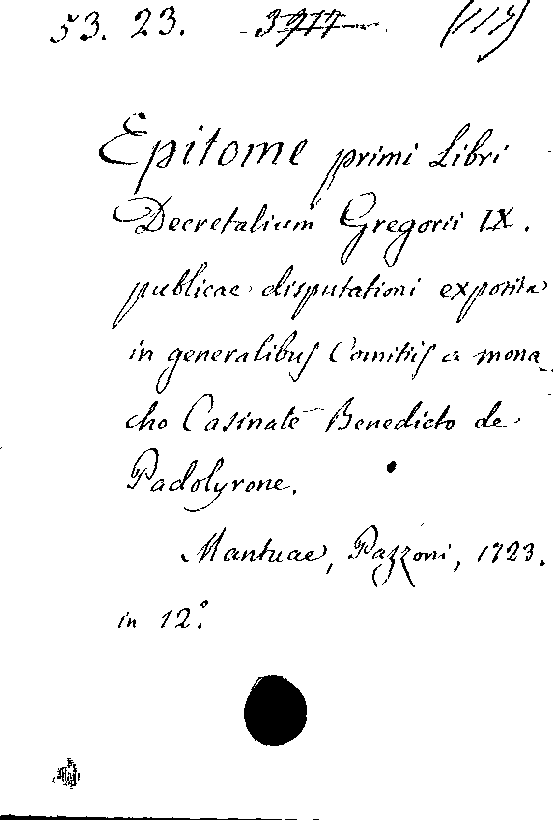 53. 23. 3977 (113)
Epitome primi Libri
Decretalium Gregorii IX.
publicae disputationi exposita
in generalibus Comitiis a mona_
cho Casinate Benedicto de
Padolyrone.
Mantuae, Pazzoni, 1723.
in 12º.